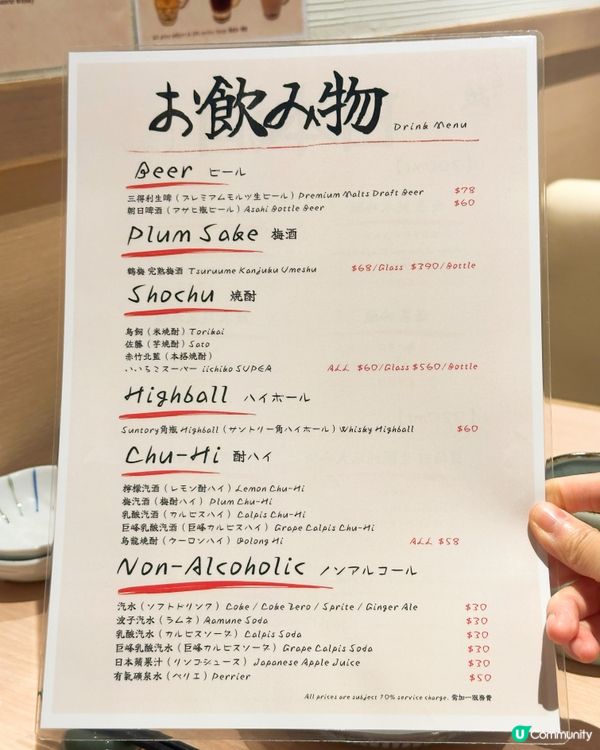 お飲み物 Drink Menu
Beer ビール
三得利生啤（プレミアムモルツ生ビール）Premium Malts Draft Beer $78
朝日啤酒（アサヒ瓶ビール）Asahi Bottle Beer $60
Plum Sake 梅酒
鶴梅 完熟梅酒 Tsuruume Kanjuku Umeshu $68/Glass $390/Bottle
Shochu 焼酎
鳥飼（米焼酎）Torikai
佐藤（芋焼酎）Sato
赤竹北藍（本格焼酎）
いいちこスーパー iichiko SUPER ALL $60/Glass $560/Bottle
Highball ハイボール
Suntory角瓶 Highball（サントリー角ハイボール）Whisky Highball $60
Chu-Hi 酎ハイ
檸檬汽酒（レモン酎ハイ）Lemon Chu-Hi
梅汽酒（梅酎ハイ）Plum Chu-Hi
乳酸汽酒（カルピスハイ）Calpis Chu-Hi
巨峰乳酸汽酒（巨峰カルピスハイ）Grape Calpis Chu-Hi
烏龍焼酎（ウーロンハイ）Oolong Hi ALL $58
Non-Alcoholic ノンアルコール
汽水（ソフトドリンク）Coke / Coke Zero / Sprite / Ginger Ale $30
波子汽水（ラムネ）Ramune Soda $30
乳酸汽水（カルピスソーダ）Calpis Soda $30
巨峰乳酸汽水（巨峰カルピスソーダ）Grape Calpis Soda $30
日本蘋果汁（リンゴジュース）Japanese Apple Juice $30
有氣礦泉水（ペリエ）Perrier $50
All prices are subject 10% service charge. 需加一服務費
U Community